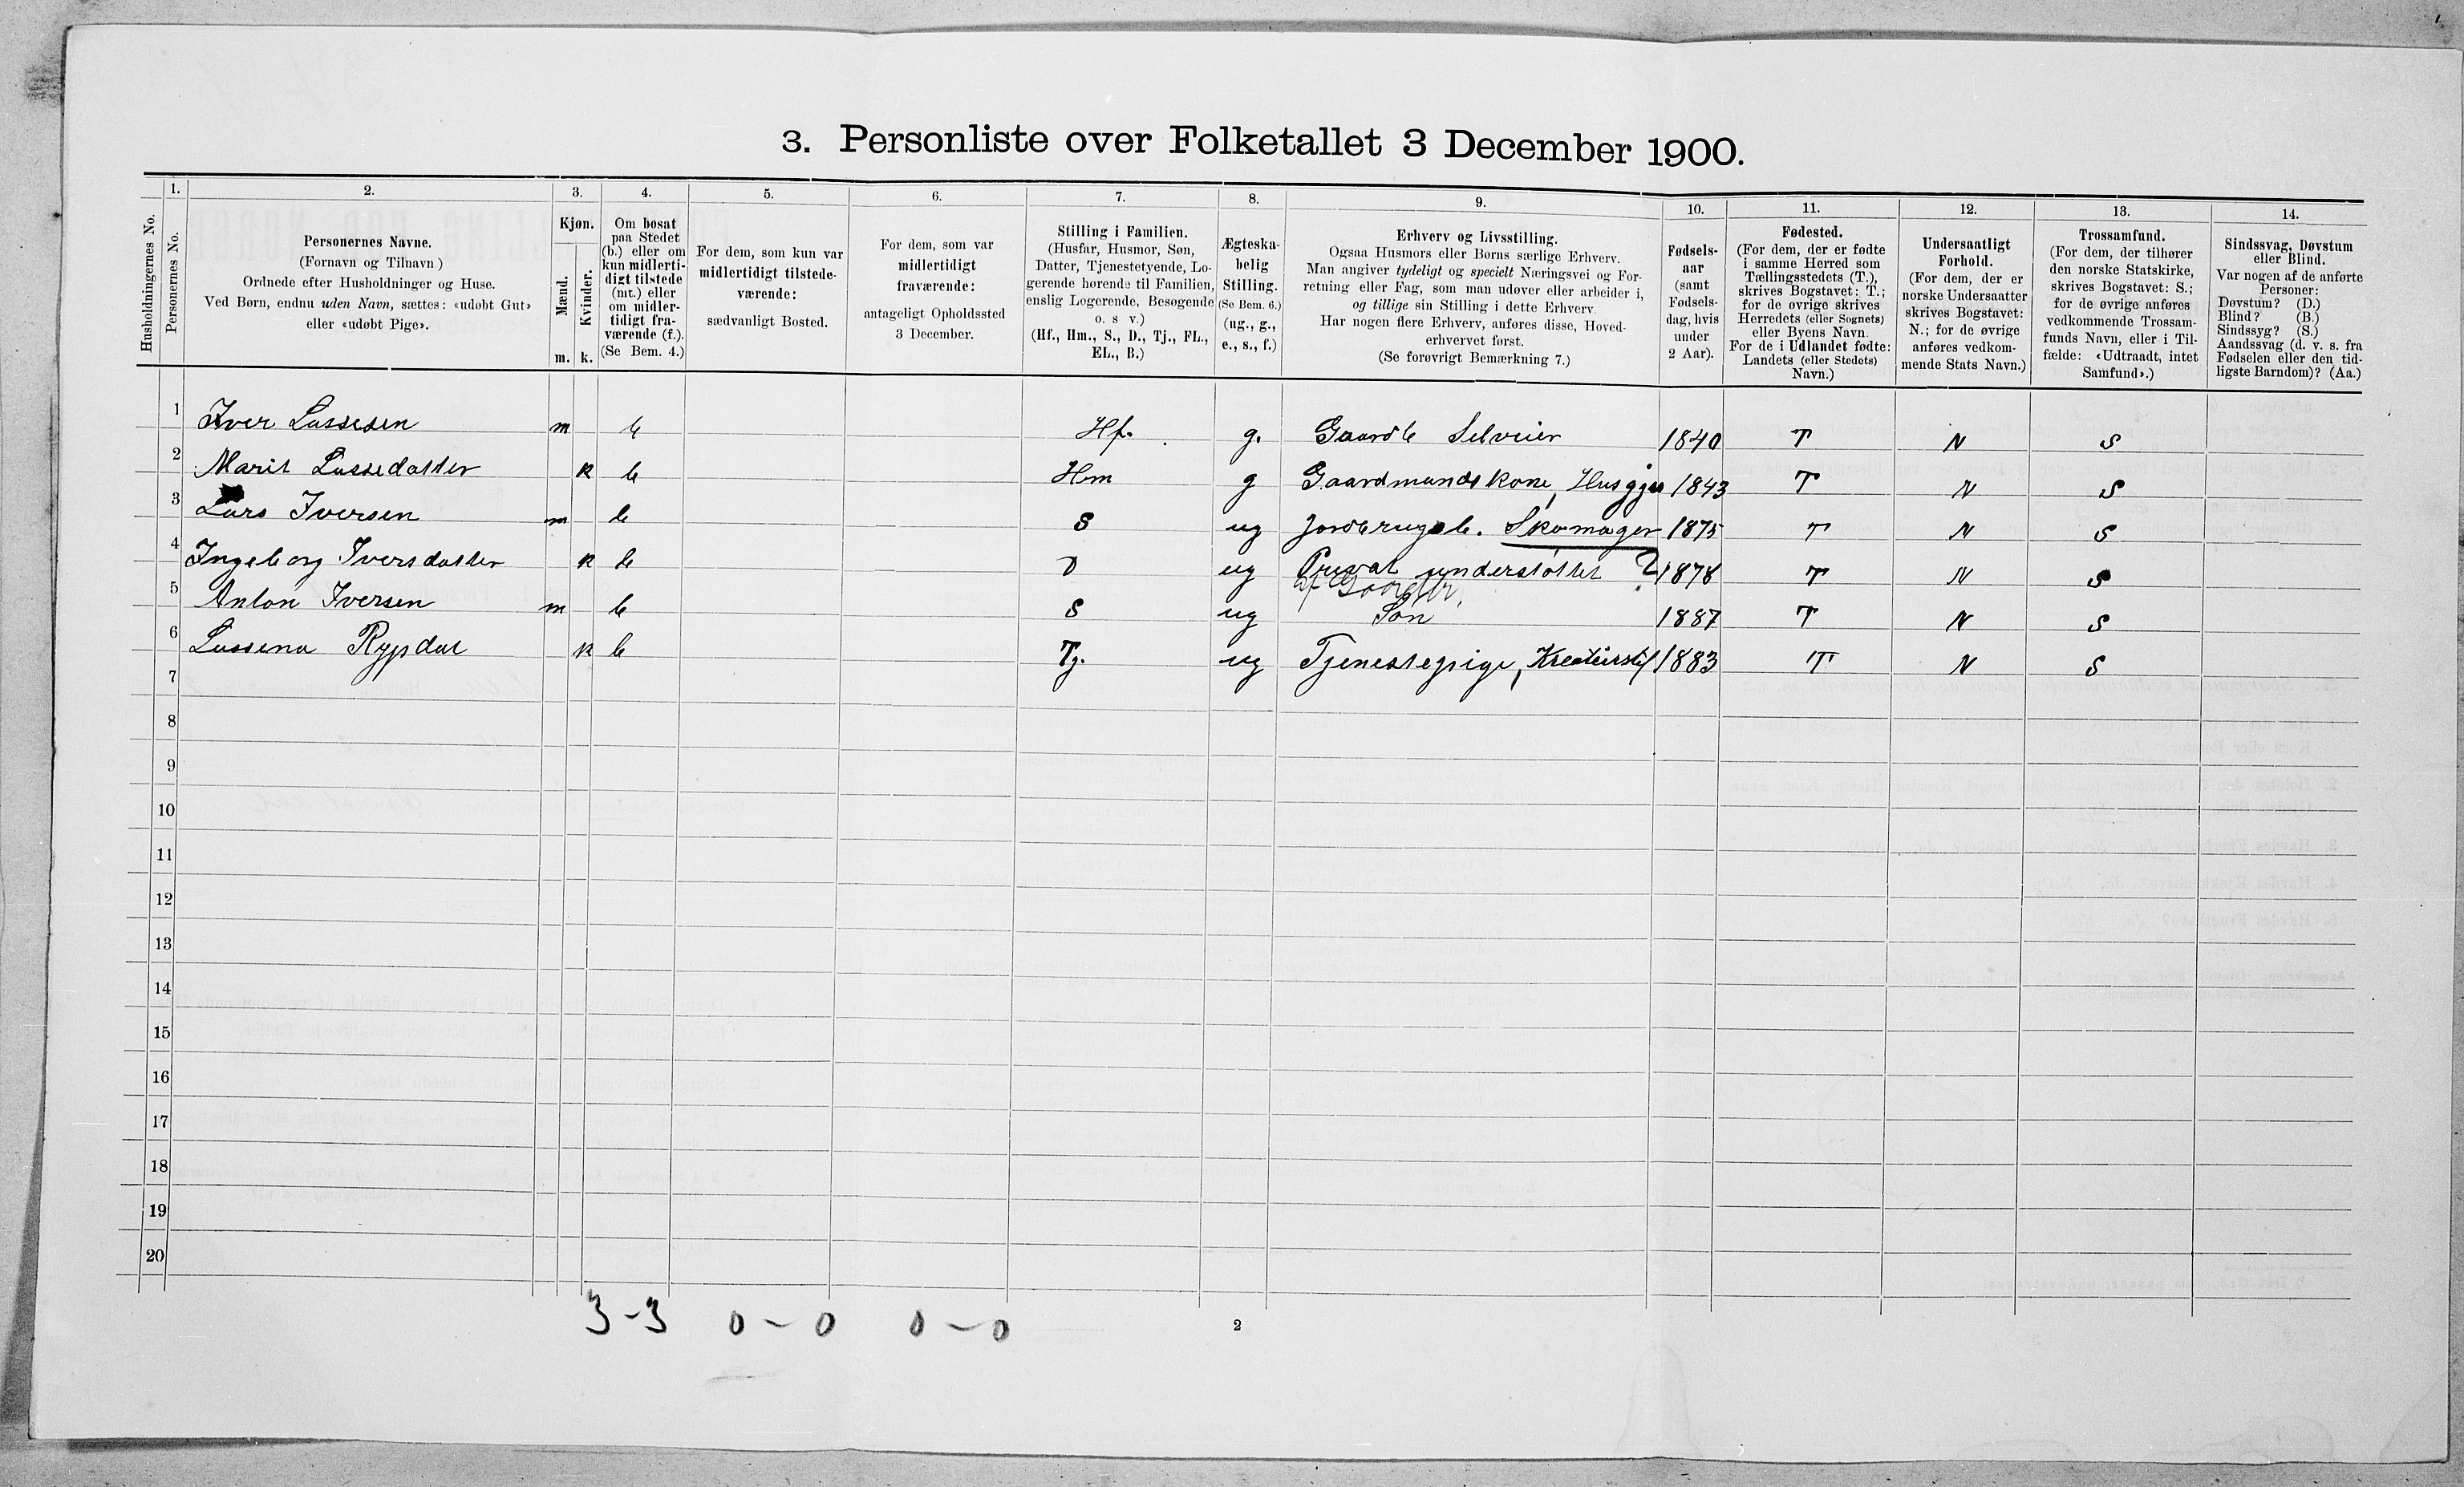 3. Personliste over Folketallet 3 December 1900.
1. 2. 3. 4. 5. 6. 7. 8. 9. 10. 11. 12. 13. 14.
Husholdningernes No.
Personernes No.
Personernes Navne.
(Fornavn og Tilnavn)
Ordnede efter Husholdninger og Huse.
Ved Børn, endnu uden Navn, sættes: «udøbt Gut»
eller «udøbt Pige».
Kjøn.
Mænd.
Kvinder.
m. k.
Om bosat
paa Stedet
(b.) eller om
kun midlerti-
digt tilstede
(mt.) eller
om midler-
tidigt fra-
værende (f.).
(Se Bem. 4.)
For dem, som kun var
midlertidigt tilstede-
værende:
sædvanligt Bosted.
For dem, som var
midlertidigt
fraværende:
antageligt Opholdssted
3 December.
Stilling i Familien.
(Husfar, Husmor, Søn,
Datter, Tjenestetyende, Lo-
gerende hørende til Familien,
enslig Logerende, Besøgende
o. s v.)
(Hf., Hm., S., D., Tj., FL.,
EL., B.)
Ægteska-
belig
Stilling.
(Se Bem. 6.)
(ug., g.,
e., s., f.)
Erhverv og Livsstilling.
Ogsaa Husmors eller Børns særlige Erhverv.
Man angiver tydeligt og specielt Næringsvei og For-
retning eller Fag, som man udøver eller arbeider i,
og tillige sin Stilling i dette Erhverv.
Har nogen flere Erhverv, anføres disse, Hoved-
erhvervet først.
(Se forøvrigt Bemærkning 7.)
Fødsels-
aar
(samt
Fødsels-
dag, hvis
under
2 Aar).
Fødested.
(For dem, der er fødte
i samme Herred som
Tællingsstedets (T.),
skrives Bogstavet: T.;
for de øvrige skrives
Herredets (eller Sognets)
eller Byens Navn.
For de i Udlandet fødte:
Landets (eller Stedets)
Navn.)
Undersaatligt
Forhold.
(For dem, der er
norske Undersaatter
skrives Bogstavet:
N.; for de øvrige
anføres vedkom-
mende Stats Navn.)
Trossamfund.
(For dem, der tilhører
den norske Statskirke,
skrives Bogstavet: S.;
for de øvrige anføres
vedkommende Trossam-
funds Navn, eller i Til-
fælde: «Udtraadt, intet
Samfund».)
Sindssvag, Døvstum
eller Blind.
Var nogen af de anførte
Personer:
Døvstum? (D.)
Blind? (B.)
Sindssyg? (S.)
Aandssvag (d. v. s. fra
Fødselen eller den tid-
ligste Barndom)? (Aa.)
1 Iver Lassesen m b Hf. g. Gaardb Selveier 1840 T N S
2 Marit Lassedatter k b Hm g Gaardmandskone, Husgjer 1843 T N S
3 Lars Iversen m b S ug Jordbrugsb. Skomager 1875 T N S
4 Ingeborg Iversdatter k b D ug Privat understøttet ? 1878 T N S
af Gaardbr.
5 Anton Iversen m b S ug Søn 1887 T N S
6 Lassena Rypdal k b Tj. ug Tjenestepige, Kreaturstel 1883 T N S
7
8
9
10
11
12
13
14
15
16
17
18
19
20
3-3 0-0 0-0
2